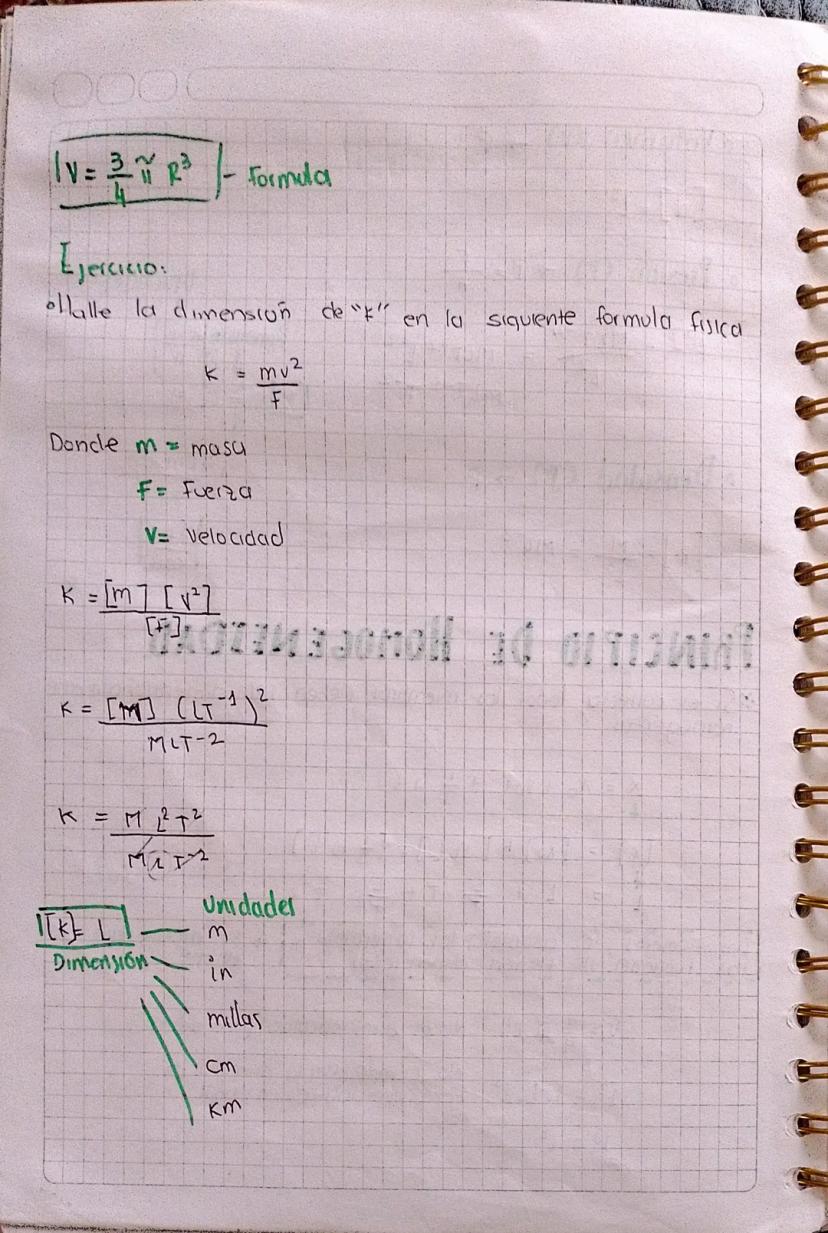 V = 3/4 π R³ - Formula
Ejercicio:
Halle la dimensión de "K" en la siguiente formula fisica
K = mv²/F
Donde m = masa
F = Fuerza
V = Velocidad
K = [m] [v²]/[F]
K = [M] (LT⁻¹)²/MLT⁻²
K = M L² T²/M L T⁻²
Unidades
[K] = L — m
Dimensión in
millas
cm
Km